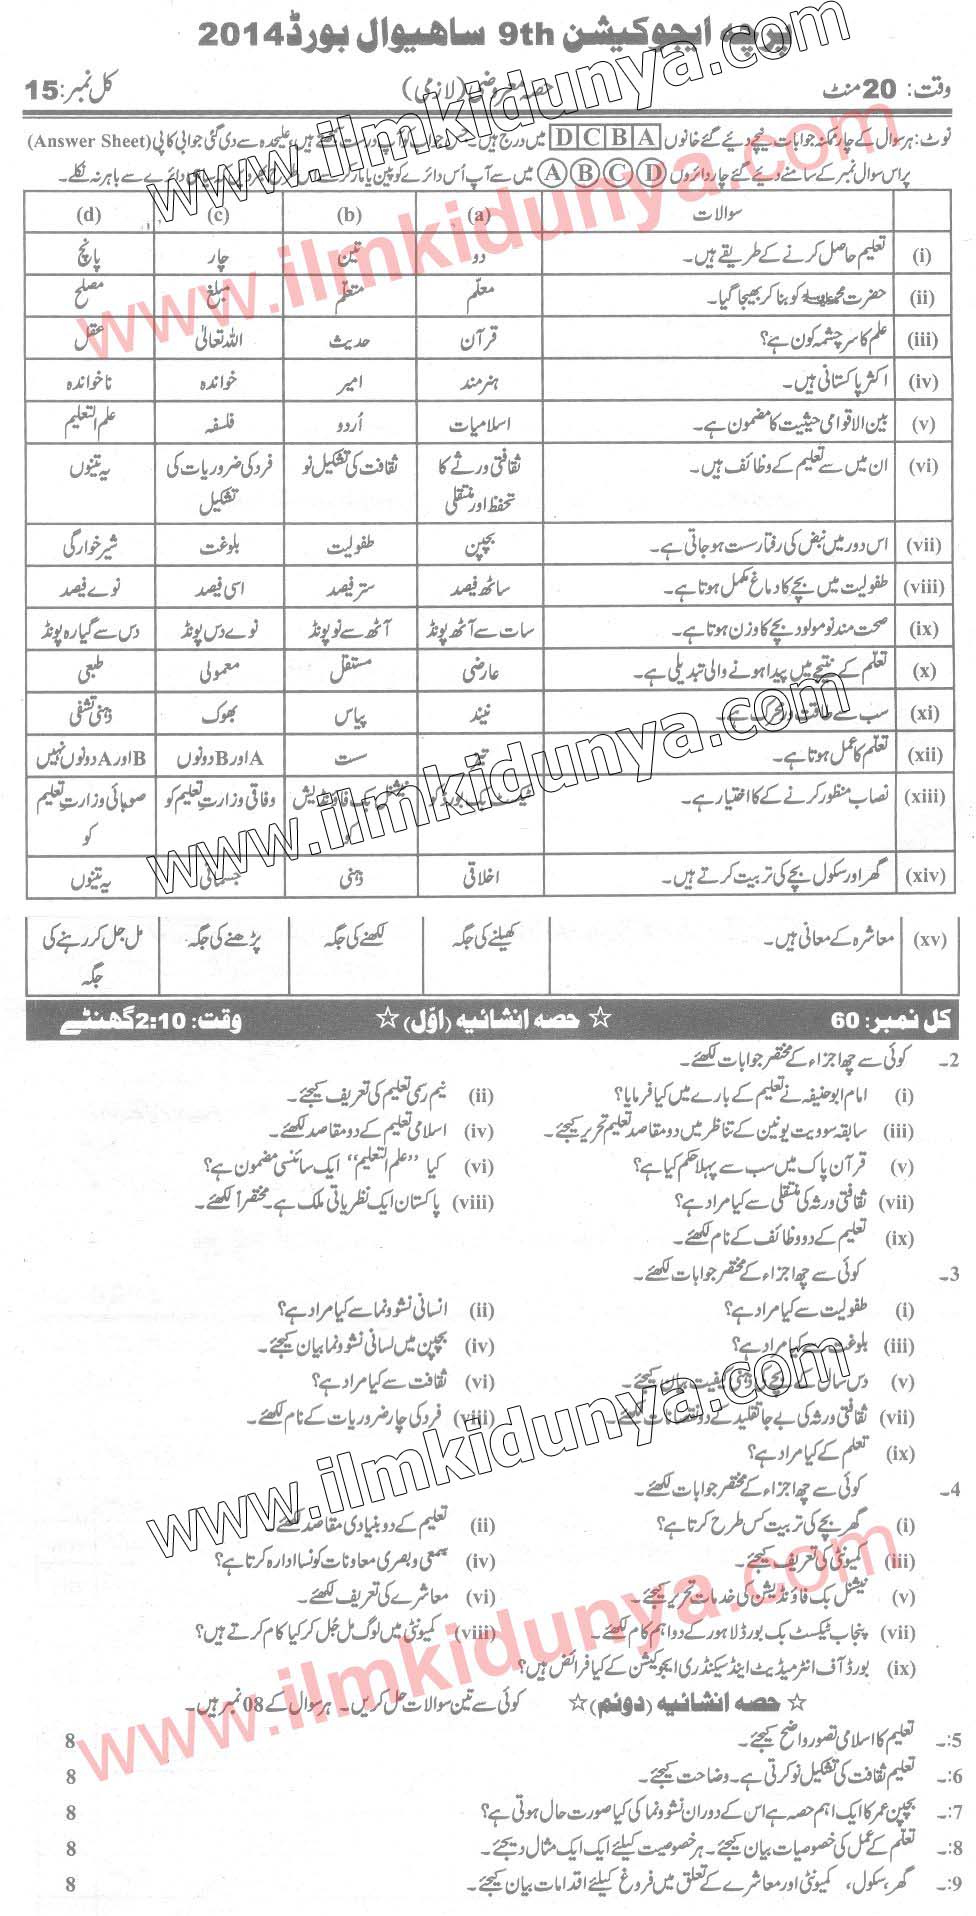 پرچہ ایجوکیشن 9th ساھیوال بورڈ 2014
وقت: 20 منٹ حصہ معروضی (لازمی) کل نمبر: 15
نوٹ: ہر سوال کے چار ممکنہ جوابات نیچے دیئے گئے خانوں D C B A میں درج ہیں۔ جس جواب کو آپ درست سمجھتے ہیں، علیحدہ سے دی گئی جوابی کاپی (Answer Sheet)
پر اس سوال نمبر کے سامنے دیئے گئے چار دائروں A B C D میں سے آپ اُس دائرے کو پین یا مارکر سے دائرے سے باہر نہ نکلے۔
سوالات (a) (b) (c) (d)
(i) تعلیم حاصل کرنے کے طریقے ہیں۔ دو تین چار پانچ
(ii) حضرت محمدﷺ کو بنا کر بھیجا گیا۔ معلّم متعلّم مبلغ مصلح
(iii) علم کا سرچشمہ کون ہے؟ قرآن حدیث اللہ تعالیٰ عقل
(iv) اکثر پاکستانی ہیں۔ ہنرمند امیر خواندہ ناخواندہ
(v) بین الاقوامی حیثیت کا مضمون ہے۔ اسلامیات اُردو فلسفہ علم التعلیم
(vi) ان میں سے تعلیم کے وظائف ہیں۔ ثقافتی ورثے کا تحفظ اور منتقلی ثقافت کی تشکیل نو فرد کی ضروریات کی تشکیل یہ تینوں
(vii) اس دور میں نبض کی رفتار سست ہو جاتی ہے۔ بچپن طفولیت بلوغت شیر خوارگی
(viii) طفولیت میں بچے کا دماغ مکمل ہوتا ہے۔ ساٹھ فیصد ستر فیصد اسی فیصد نوے فیصد
(ix) صحت مند نومولود بچے کا وزن ہوتا ہے۔ سات سے آٹھ پونڈ آٹھ سے نو پونڈ نوے دس پونڈ دس سے گیارہ پونڈ
(x) تعلّم کے نتیجے میں پیدا ہونے والی تبدیلی ہے۔ عارضی مستقل معمولی طبعی
(xi) سب سے طاقت ور محرک ہے۔ نیند پیاس بھوک ذہنی تشفی
(xii) تعلّم کا عمل ہوتا ہے۔ تیز ست A اور B دونوں B اور A دونوں نہیں
(xiii) نصاب منظور کرنے کا اختیار ہے۔ ٹیکسٹ بک بورڈ کو نیشنل بک فاؤنڈیشن کو وفاقی وزارتِ تعلیم کو صوبائی وزارتِ تعلیم کو
(xiv) گھر اور سکول بچے کی تربیت کرتے ہیں۔ اخلاقی ذہنی جسمانی یہ تینوں
(xv) معاشرہ کے معانی ہیں۔ کھیلنے کی جگہ لکھنے کی جگہ پڑھنے کی جگہ مل جل کر رہنے کی جگہ
کل نمبر: 60 ☆ حصہ انشائیہ (اوّل) ☆ وقت: 2:10 گھنٹے
2۔ کوئی سے چھ اجزاء کے مختصر جوابات لکھئے۔
(i) امام ابو حنیفہ نے تعلیم کے بارے میں کیا فرمایا؟ (ii) نیم رسمی تعلیم کی تعریف کیجئے۔
(iii) سابقہ سوویت یونین کے تناظر میں دو مقاصد تعلیم تحریر کیجئے۔ (iv) اسلامی تعلیم کے دو مقاصد لکھئے۔
(v) قرآن پاک میں سب سے پہلا حکم کیا ہے؟ (vi) کیا "علم التعلیم" ایک سائنسی مضمون ہے؟
(vii) ثقافتی ورثہ کی منتقلی سے کیا مراد ہے؟ (viii) پاکستان ایک نظریاتی ملک ہے۔ مختصراً لکھئے۔
(ix) تعلیم کے دو وظائف کے نام لکھئے۔
3۔ کوئی سے چھ اجزاء کے مختصر جوابات لکھئے۔
(i) طفولیت سے کیا مراد ہے؟ (ii) انسانی نشوونما سے کیا مراد ہے؟
(iii) بلوغت سے کیا مراد ہے؟ (iv) بچپن میں لسانی نشوونما بیان کیجئے۔
(v) دس سال کے بچے کی ذہنی کیفیت بیان کیجئے۔ (vi) ثقافت سے کیا مراد ہے؟
(vii) ثقافتی ورثہ کی بے جا تقلید کے دو نقصانات لکھئے۔ (viii) فرد کی چار ضروریات کے نام لکھئے۔
(ix) تعلم کے کیا مراد ہے؟
4۔ کوئی سے چھ اجزاء کے مختصر جوابات لکھئے۔
(i) گھر بچے کی تربیت کس طرح کرتا ہے؟ (ii) تعلیم کے دو بنیادی مقاصد لکھئے۔
(iii) کمیونٹی کی تعریف کیجئے۔ (iv) سمعی و بصری معاونات کونسا ادارہ کرتا ہے؟
(v) نیشنل بک فاؤنڈیشن کی خدمات تحریر کیجئے۔ (vi) معاشرے کی تعریف لکھئے۔
(vii) پنجاب ٹیکسٹ بک بورڈ لاہور کے دو اہم کام لکھئے۔ (viii) کمیونٹی میں لوگ مل جُل کر کیا کام کرتے ہیں؟
(ix) بورڈ آف انٹرمیڈیٹ اینڈ سیکنڈری ایجوکیشن کے کیا فرائض ہیں؟
☆ حصہ انشائیہ (دوئم) ☆ کوئی سے تین سوالات حل کریں۔ ہر سوال کے 08 نمبر ہیں۔
5:۔ تعلیم کا اسلامی تصور واضح کیجئے۔ 8
6:۔ تعلیم ثقافت کی تشکیل نو کرتی ہے۔ وضاحت کیجئے۔ 8
7:۔ بچپن عمر کا ایک اہم حصہ ہے اس کے دوران نشوونما کی کیا صورت حال ہوتی ہے؟ 8
8:۔ تعلّم کے عمل کی خصوصیات بیان کیجئے۔ ہر خصوصیت کیلئے ایک ایک مثال دیجئے۔ 8
9:۔ گھر، سکول، کمیونٹی اور معاشرے کے تعلق میں فروغ کیلئے اقدامات بیان کیجئے۔ 8
www.ilmkidunya.com
www.ilmkidunya.com
www.ilmkidunya.com
www.ilmkidunya.com
www.ilmkidunya.com